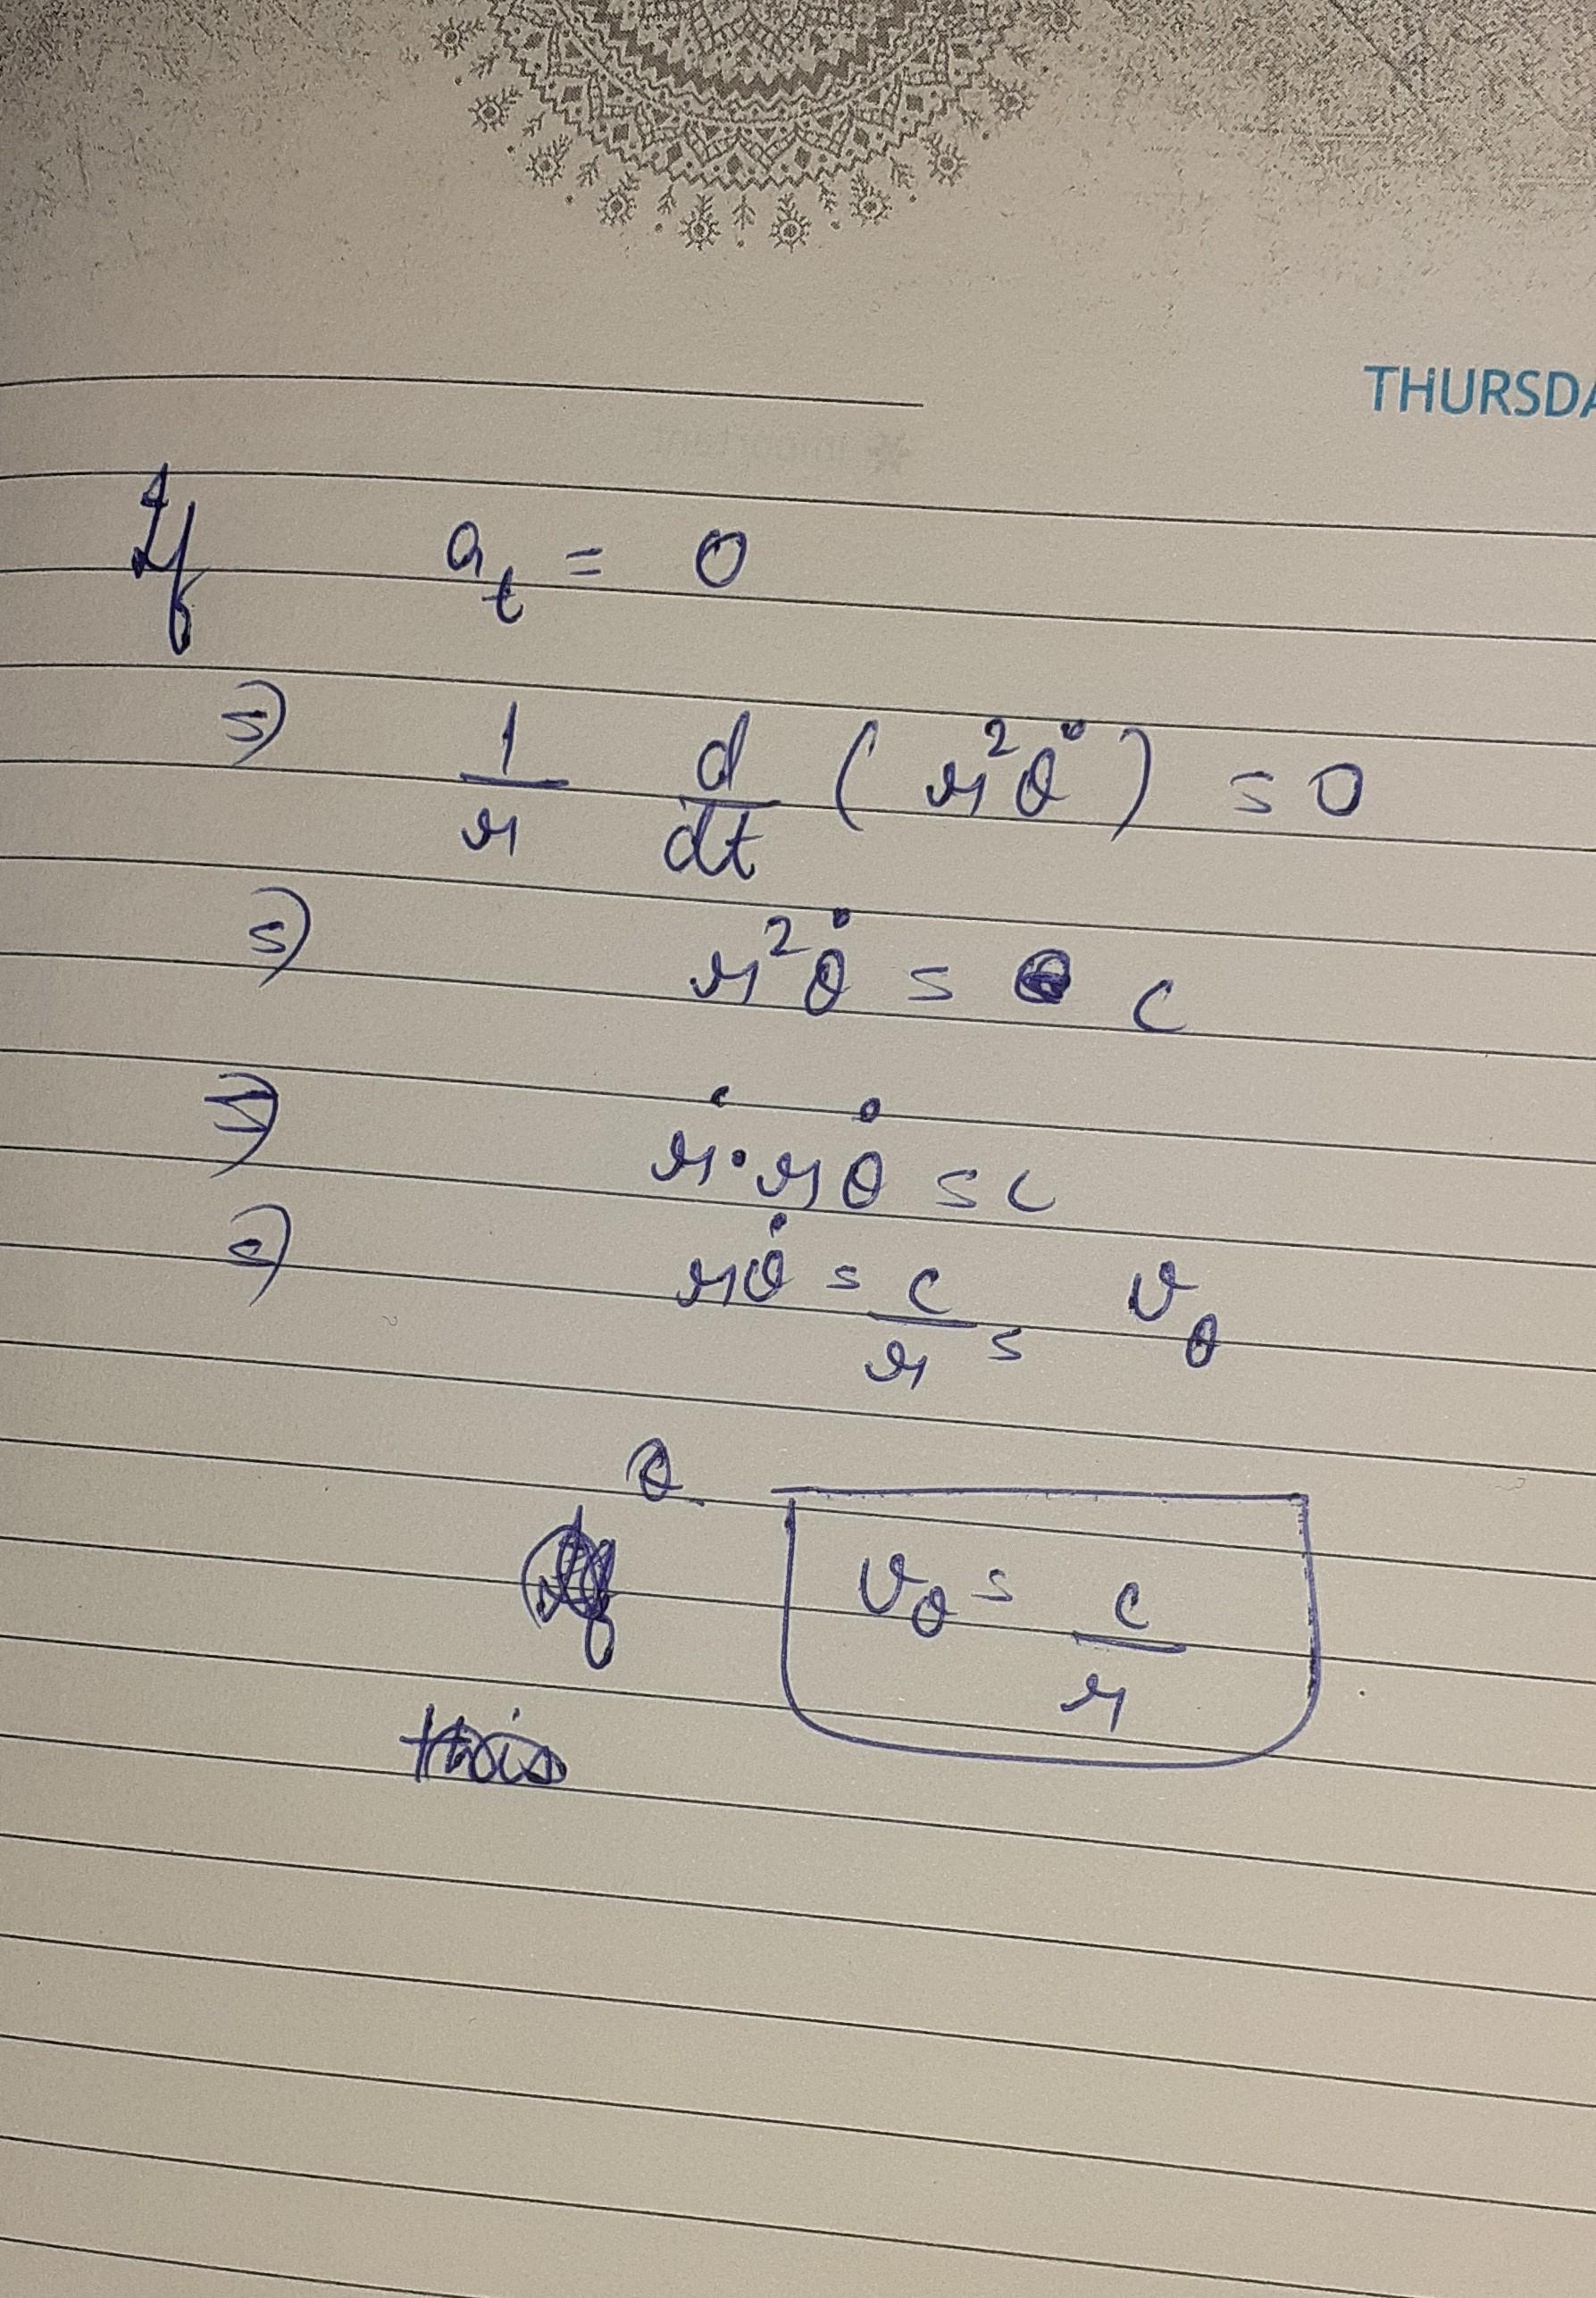 THURSDA
If a_t = 0
⇒ 1/r d/dt (r²θ̇) = 0
⇒ r²θ̇ = c
⇒ r·rθ̇ = c
⇒ rθ̇ = c/r = v_θ
v_θ = c/r